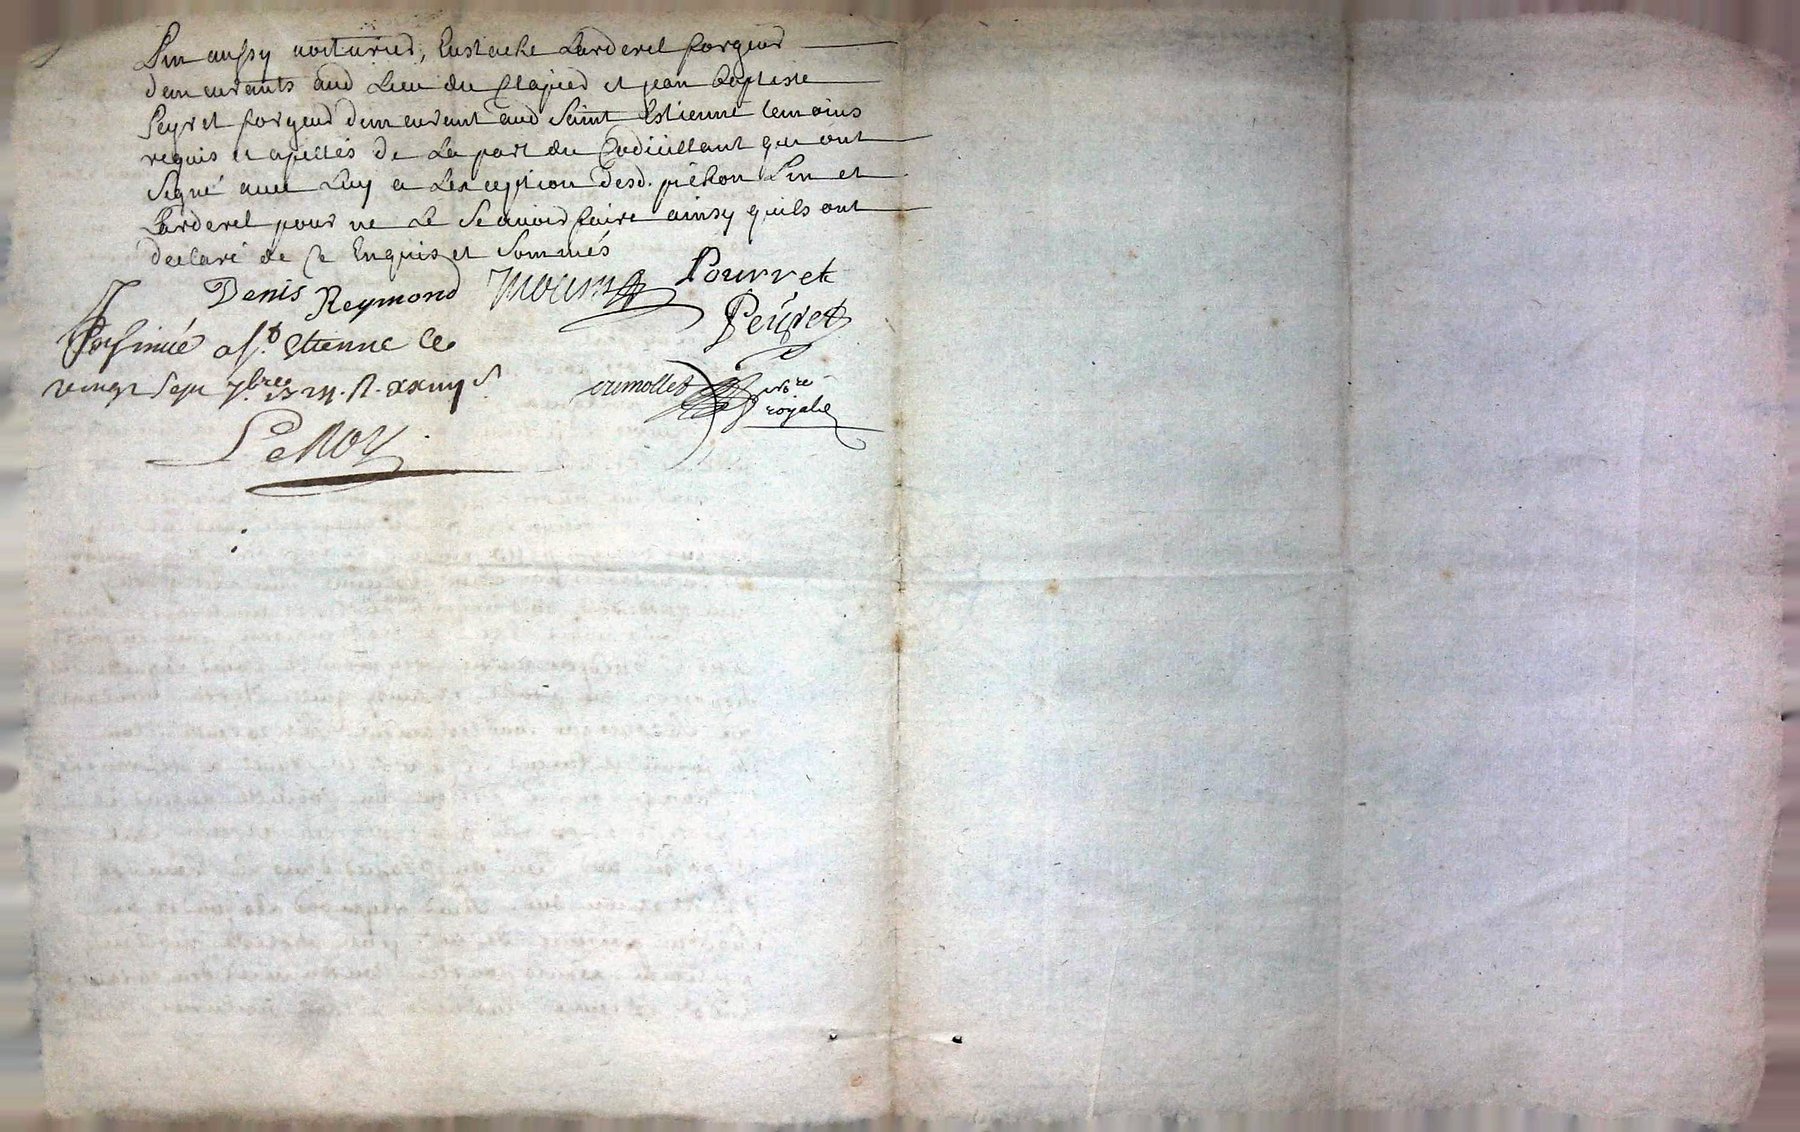 Lin aussy voiturier, Eustache Larderel forgeur
demeurants aud Lieu du Clapier et jean Baptiste
Peyret forgeur demeurant aud Saint Estienne temoins
requis et apellés de La part du Codicillant qui ont
Signé avec Luy a Lexception desd. pichon Lin et
Larderel pour ne Le Scavoir faire ainsy quils ont
declaré de Ce Enquis et Sommés
Denis Reymond Pourret
Peyret
Insinué a St. Etienne le
vingt Sept 7bre
nore
royal
LeRoy